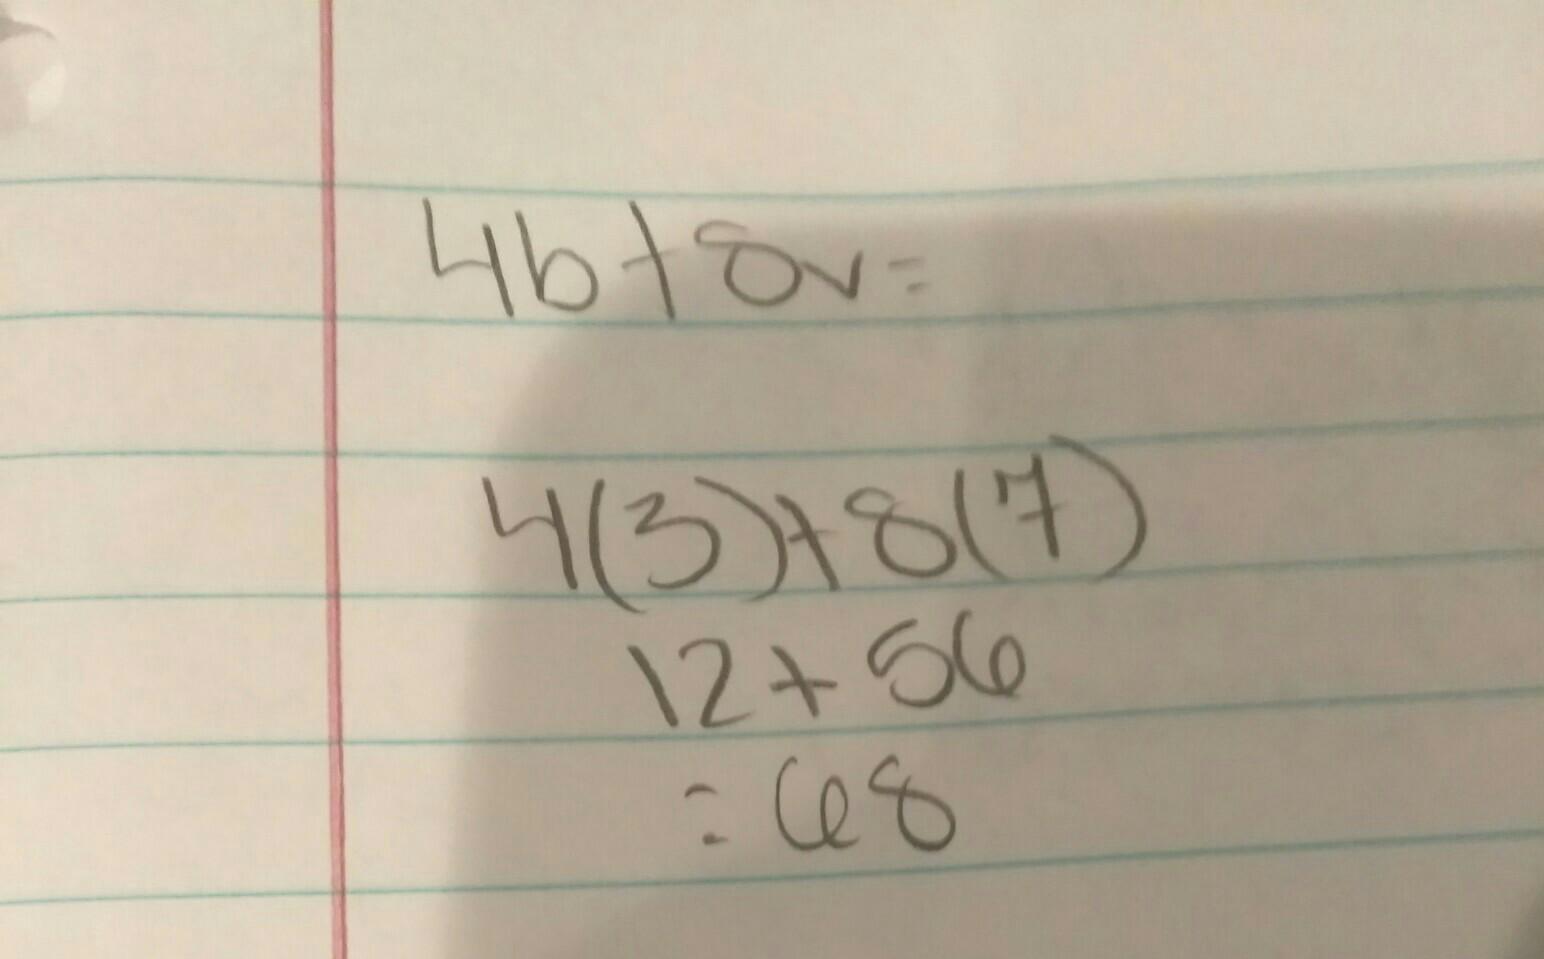 4b+8v=
4(3)+8(7)
12+56
=68